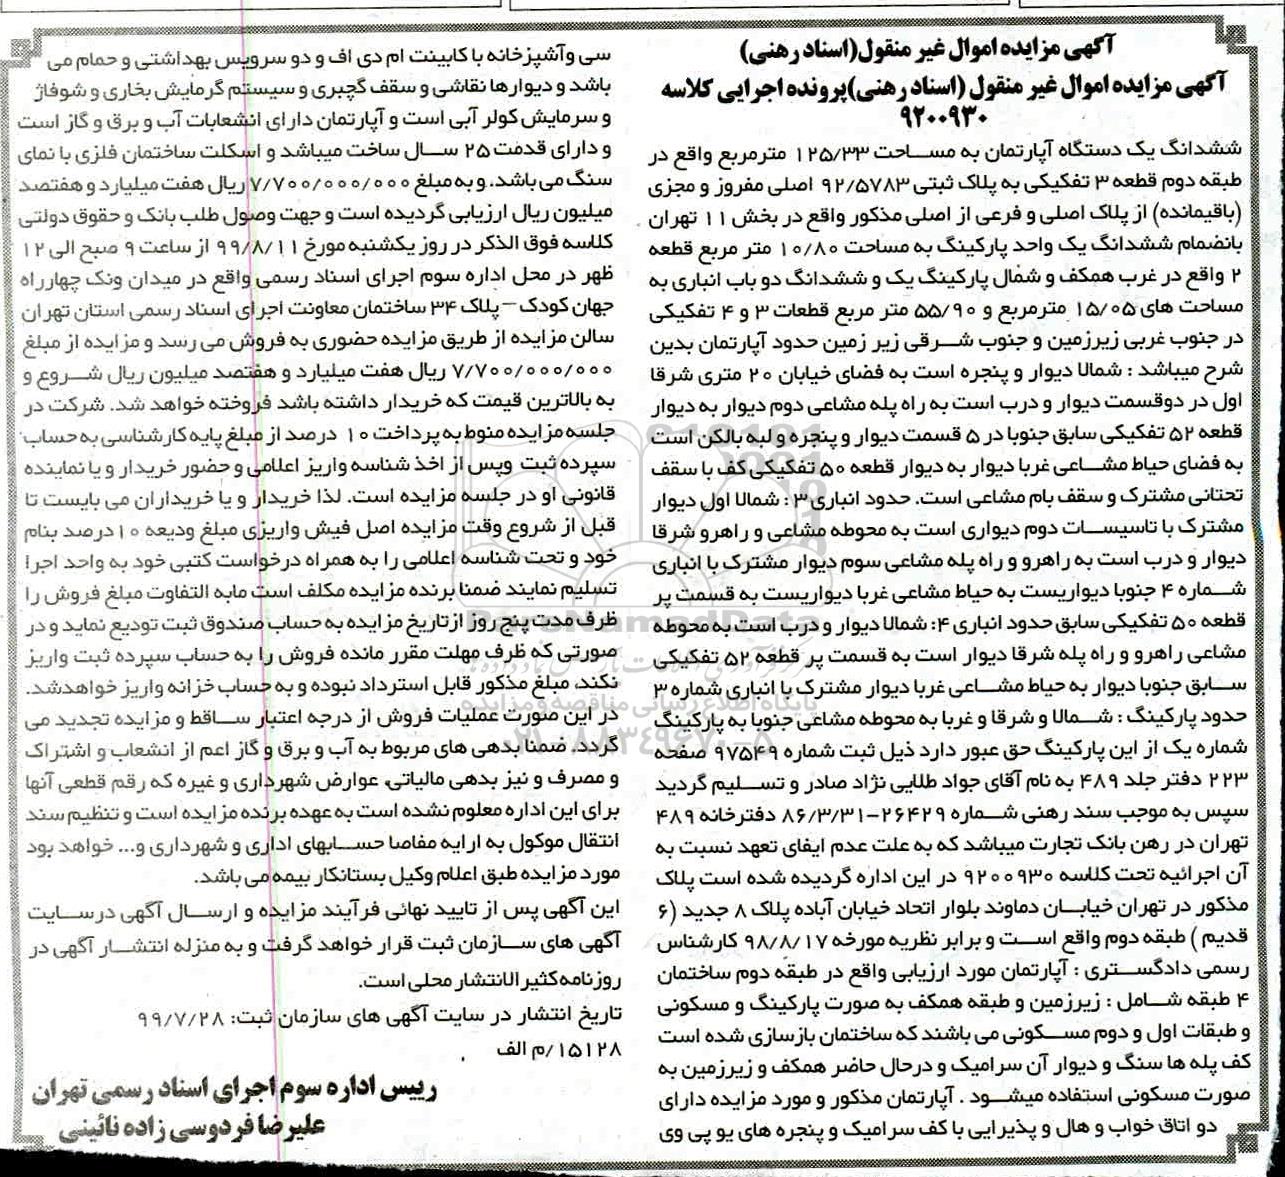 آگهی مزایده اموال غیر منقول(اسناد رهنی)
آگهی مزایده اموال غیر منقول (اسناد رهنی)پرونده اجرایی کلاسه
۹۲۰۰۹۳۰
ششدانگ یک دستگاه آپارتمان به مساحت ۱۲۵/۳۳ مترمربع واقع در
طبقه دوم قطعه ۳ تفکیکی به پلاک ثبتی ۹۲/۵۷۸۳ اصلی مفروز و مجزی
(باقیمانده) از پلاک اصلی و فرعی از اصلی مذکور واقع در بخش ۱۱ تهران
بانضمام ششدانگ یک واحد پارکینگ به مساحت ۱۰/۸۰ متر مربع قطعه
۲ واقع در غرب همکف و شمال پارکینگ یک و ششدانگ دو باب انباری به
مساحت های ۱۵/۰۵ مترمربع و ۵۵/۹۰ متر مربع قطعات ۳ و ۴ تفکیکی
در جنوب غربی زیرزمین و جنوب شرقی زیر زمین حدود آپارتمان بدین
شرح میباشد : شمالا دیوار و پنجره است به فضای خیابان ۲۰ متری شرقا
اول در دوقسمت دیوار و درب است به راه پله مشاعی دوم دیوار به دیوار
قطعه ۵۲ تفکیکی سابق جنوبا در ۵ قسمت دیوار و پنجره و لبه بالکن است
به فضای حیاط مشاعی غربا دیوار به دیوار قطعه ۵۰ تفکیکی کف با سقف
تحتانی مشترک و سقف بام مشاعی است. حدود انباری ۳ : شمالا اول دیوار
مشترک با تاسیسات دوم دیواری است به محوطه مشاعی و راهرو شرقا
دیوار و درب است به راهرو و راه پله مشاعی سوم دیوار مشترک با انباری
شماره ۴ جنوبا دیواریست به حیاط مشاعی غربا دیواریست به قسمت پر
قطعه ۵۰ تفکیکی سابق حدود انباری ۴: شمالا دیوار و درب است به محوطه
مشاعی راهرو و راه پله شرقا دیوار است به قسمت پر قطعه ۵۲ تفکیکی
سابق جنوبا دیوار به حیاط مشاعی غربا دیوار مشترک با انباری شماره ۳
حدود پارکینگ : شمالا و شرقا و غربا به محوطه مشاعی جنوبا به پارکینگ
شماره یک از این پارکینگ حق عبور دارد ذیل ثبت شماره ۹۷۵۴۹ صفحه
۲۲۳ دفتر جلد ۴۸۹ به نام آقای جواد طلایی نژاد صادر و تسلیم گردید
سپس به موجب سند رهنی شماره ۲۶۴۲۹-۸۶/۳/۳۱ دفترخانه ۴۸۹
تهران در رهن بانک تجارت میباشد که به علت عدم ایفای تعهد نسبت به
آن اجرائیه تحت کلاسه ۹۲۰۰۹۳۰ در این اداره گردیده شده است پلاک
مذکور در تهران خیابان دماوند بلوار اتحاد خیابان آباده پلاک ۸ جدید (۶
قدیم ) طبقه دوم واقع است و برابر نظریه مورخه ۹۸/۸/۱۷ کارشناس
رسمی دادگستری : آپارتمان مورد ارزیابی واقع در طبقه دوم ساختمان
۴ طبقه شامل : زیرزمین و طبقه همکف به صورت پارکینگ و مسکونی
و طبقات اول و دوم مسکونی می باشند که ساختمان بازسازی شده است
کف پله ها سنگ و دیوار آن سرامیک و درحال حاضر همکف و زیرزمین به
صورت مسکونی استفاده میشود . آپارتمان مذکور و مورد مزایده دارای
دو اتاق خواب و هال و پذیرایی با کف سرامیک و پنجره های یو پی وی
سی وآشپزخانه با کابینت ام دی اف و دو سرویس بهداشتی و حمام می
باشد و دیوارها نقاشی و سقف گچبری و سیستم گرمایش بخاری و شوفاژ
و سرمایش کولر آبی است و آپارتمان دارای انشعابات آب و برق و گاز است
و دارای قدمت ۲۵ سال ساخت میباشد و اسکلت ساختمان فلزی با نمای
سنگ می باشد، و به مبلغ ۷/۷۰۰/۰۰۰/۰۰۰ ریال هفت میلیارد و هفتصد
میلیون ریال ارزیابی گردیده است و جهت وصول طلب بانک و حقوق دولتی
کلاسه فوق الذکر در روز یکشنبه مورخ ۹۹/۸/۱۱ از ساعت ۹ صبح الی ۱۲
ظهر در محل اداره سوم اجرای اسناد رسمی واقع در میدان ونک چهارراه
جهان کودک – پلاک ۳۴ ساختمان معاونت اجرای اسناد رسمی استان تهران
سالن مزایده از طریق مزایده حضوری به فروش می رسد و مزایده از مبلغ
۷/۷۰۰/۰۰۰/۰۰۰ ریال هفت میلیارد و هفتصد میلیون ریال شروع و
به بالاترین قیمت که خریدار داشته باشد فروخته خواهد شد. شرکت در
جلسه مزایده منوط به پرداخت ۱۰ درصد از مبلغ پایه کارشناسی به حساب
سپرده ثبت وپس از اخذ شناسه واریز اعلامی و حضور خریدار و یا نماینده
قانونی او در جلسه مزایده است. لذا خریدار و یا خریداران می بایست تا
قبل از شروع وقت مزایده اصل فیش واریزی مبلغ ودیعه ۱۰درصد بنام
خود و تحت شناسه اعلامی را به همراه درخواست کتبی خود به واحد اجرا
تسلیم نمایند ضمنا برنده مزایده مکلف است مابه التفاوت مبلغ فروش را
ظرف مدت پنج روز ازتاریخ مزایده به حساب صندوق ثبت تودیع نماید و در
صورتی که ظرف مهلت مقرر مانده فروش را به حساب سپرده ثبت واریز
نکند، مبلغ مذکور قابل استرداد نبوده و به حساب خزانه واریز خواهدشد.
در این صورت عملیات فروش از درجه اعتبار ساقط و مزایده تجدید می
گردد. ضمنا بدهی های مربوط به آب و برق و گاز اعم از انشعاب و اشتراک
و مصرف و نیز بدهی مالیاتی، عوارض شهرداری و غیره که رقم قطعی آنها
برای این اداره معلوم نشده است به عهده برنده مزایده است و تنظیم سند
انتقال موکول به ارایه مفاصا حسابهای اداری و شهرداری و... خواهد بود
مورد مزایده طبق اعلام وکیل بستانکار بیمه می باشد.
این آگهی پس از تایید نهائی فرآیند مزایده و ارسال آگهی درسایت
آگهی های سازمان ثبت قرار خواهد گرفت و به منزله انتشار آگهی در
روزنامه کثیر الانتشار محلی است.
تاریخ انتشار در سایت آگهی های سازمان ثبت: ۹۹/۷/۲۸
۱۵۱۲۸/م الف
رییس اداره سوم اجرای اسناد رسمی تهران
علیرضا فردوسی زاده نائینی
ParsNamadData
پایگاه اطلاع رسانی مناقصه و مزایده
۰۲۱-۸۸۳۴۹۶۷۰-۵